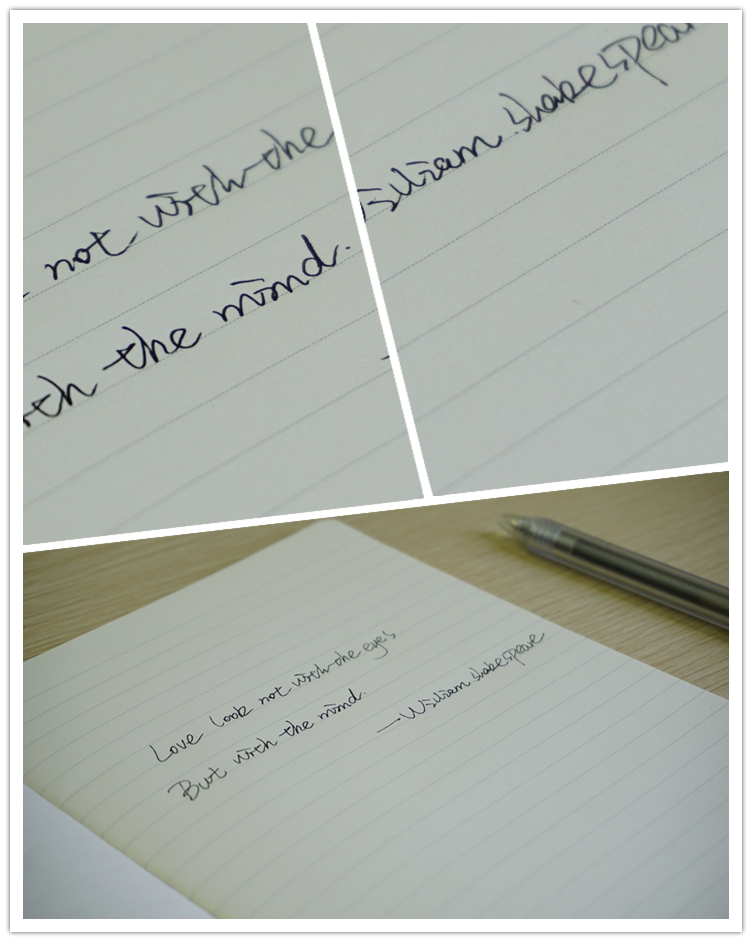 not with the
with the mind.
William shakespear
Love look not with the eyes
But with the mind.
—William shakespeare